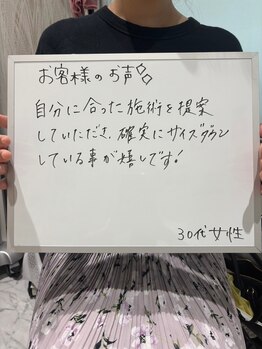 お客様のお声
自分に合った施術を提案
していただき、確実にサイズダウン
している事が嬉しいです!
30代女性